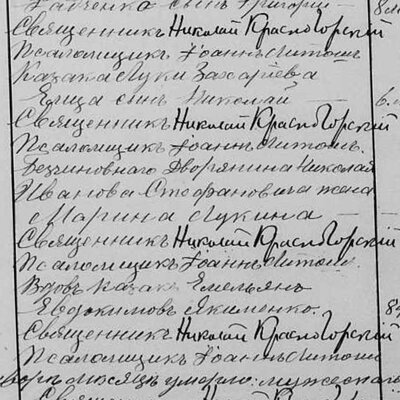 Радченка сынъ Григорій — 8 м
Священникъ Николай Красногорскій
Псаломщикъ Іоаннъ Литош
Казака Луки Захаріева
сынъ Николай — 6. м
Священникъ Николай Красногорскій
Псаломщикъ Іоаннъ Литош.
Безчиновнаго Дворянина Николая
Иванова Стефановича жена
Марина Лукина —
Священникъ Николай Красногорскій
Псаломщикъ Іоаннъ Литош.
Вдовъ казакъ Емельянъ
Евдокимовъ Якименко. 8
Священникъ Николай Красногорскій
Псаломщикъ Іоаннъ Литош
мѣсяцѣ умерло: мужескаго